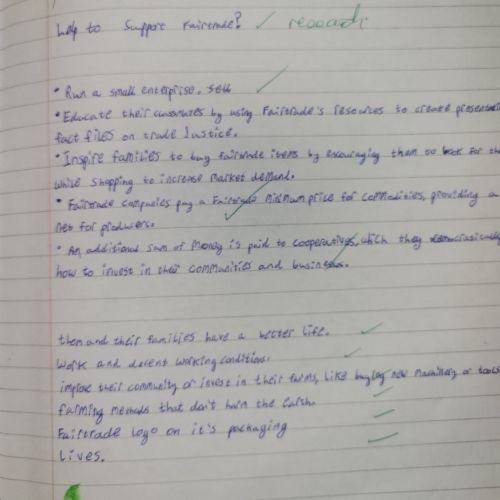 help to support Fairtrade? research
• Run a small enterprise. sell
• Educate their classmates by using Fairtrade's resources to create
fact files on trade Justice.
• Inspire families to buy fairtrade items by encouraging them to look for the
while shopping to increase market demand.
• Fairtrade companies pay a Fairtrade minimum price for commodities, providing a
net for producers.
• An additional sum of money is paid to cooperatives, which they democratically
how to invest in their communities and business.
them and their families have a better life.
Work and decent working conditions.
improve their community or invest in their farms, like buying new machinery or tools
farming methods that don't harm the Earth.
Fairtrade logo on it's packaging
Lives.